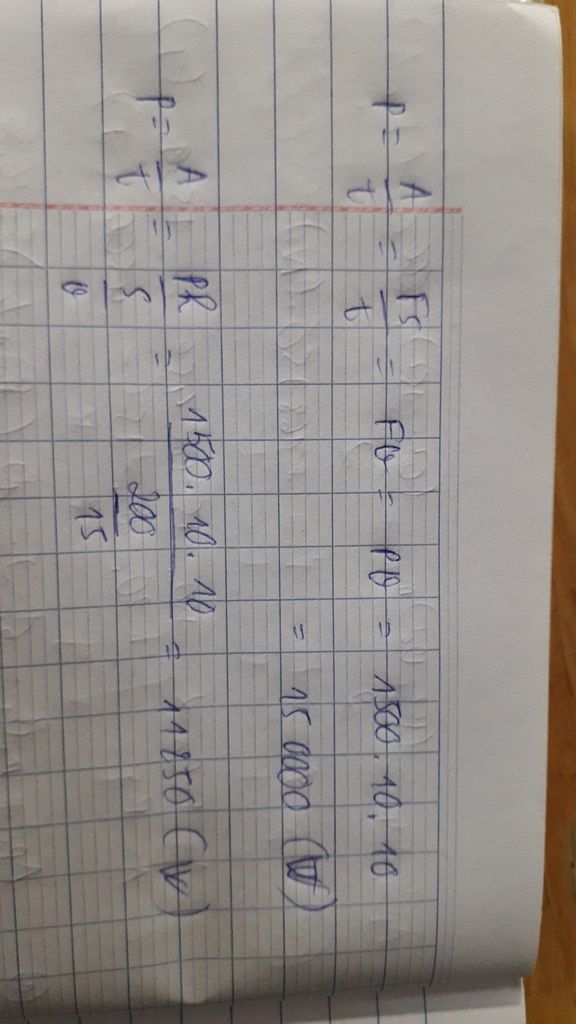 P = A/t = FS/t = Fv = Pv = 1500.10.10
= 150000 (W)
P = A/t = Ph/(S/v) = 1500.10.10/(200/15) = 11250 (W)